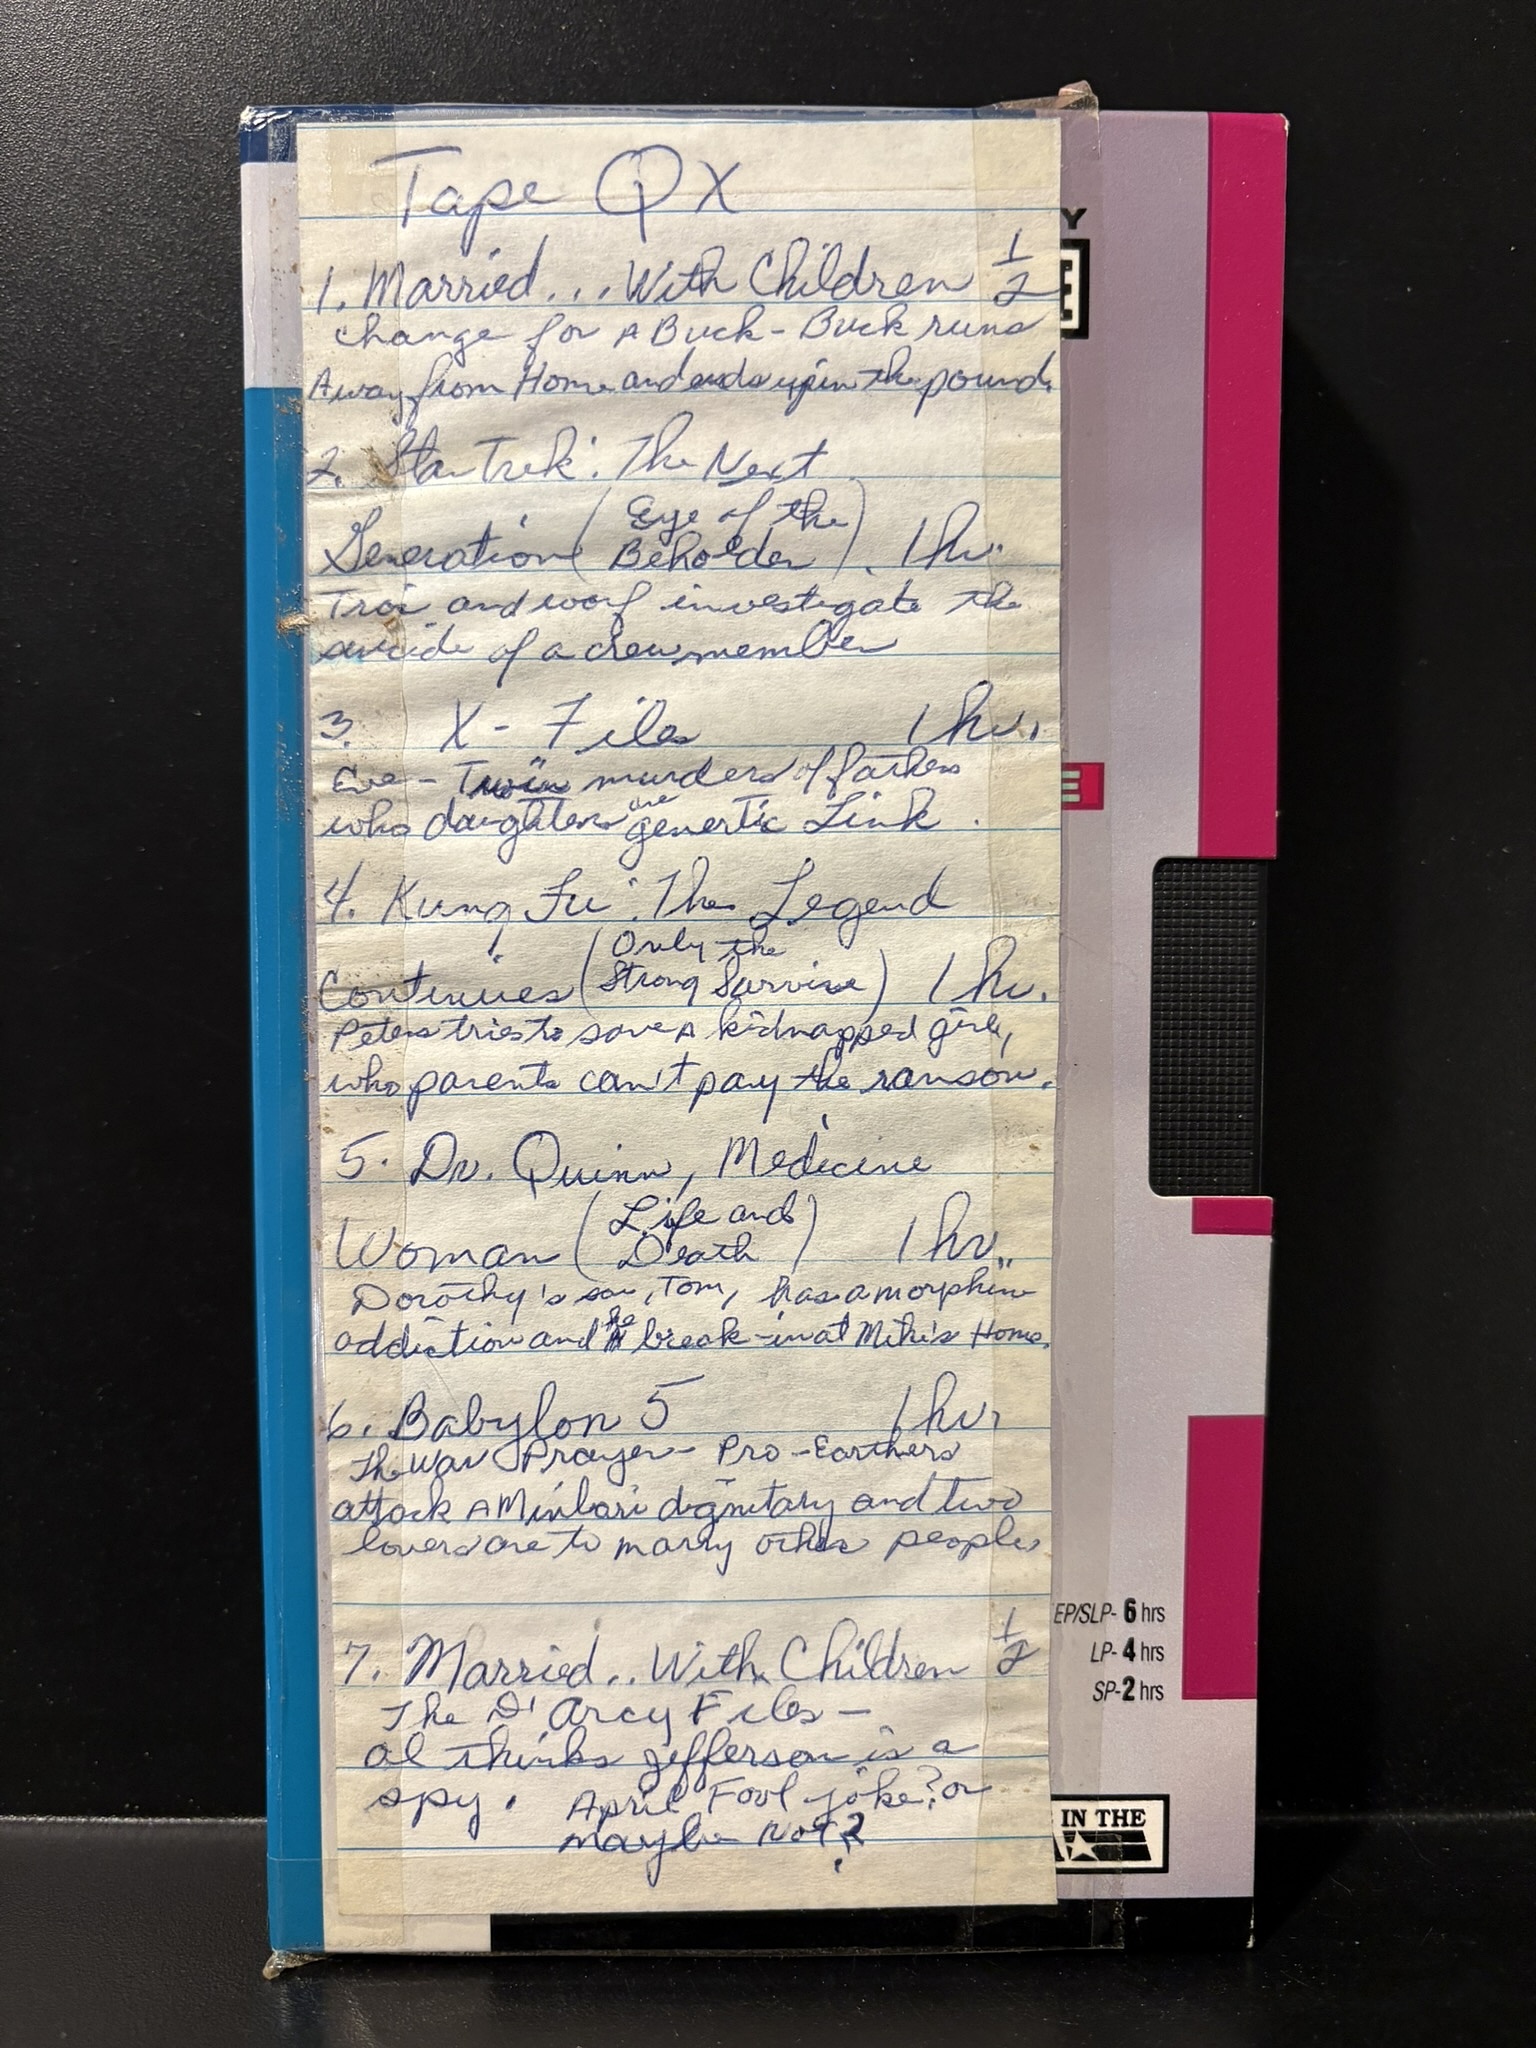 Tape QX
1. Married... With Children 1/2
Change for A Buck - Buck runs
Away from Home and ends up in the pound.
2. Star Trek: The Next
Generation (Eye of the
Beholder). 1 hr.
Troi and worf investigate the
suicide of a crew member
3. X-Files 1 hr.
Eve - Twin murders of fathers
who daughters are genertic Link.
4. Kung Fu: The Legend
Continues (Only the
Strong Survive) 1 hr.
Peter tries to save A kidnapped girl,
who parents can't pay the ransom.
5. Dr. Quinn, Medicine
Woman (Life and
Death) 1 hr.
Dorothy's son, Tom, has a morphine
addiction and he break-in at Mike's Home.
6. Babylon 5 1 hr.
The War Prayer - Pro-Earthers
attack A Minbari dignitary and two
lovers are to marry other people
7. Married.. With Children 1/2
The D'Arcy Files -
al thinks jefferson is a
spy. April Fool joke? or
maybe Not?
Y
E
E
EP/SLP- 6 hrs
LP- 4 hrs
SP- 2 hrs
IN THE